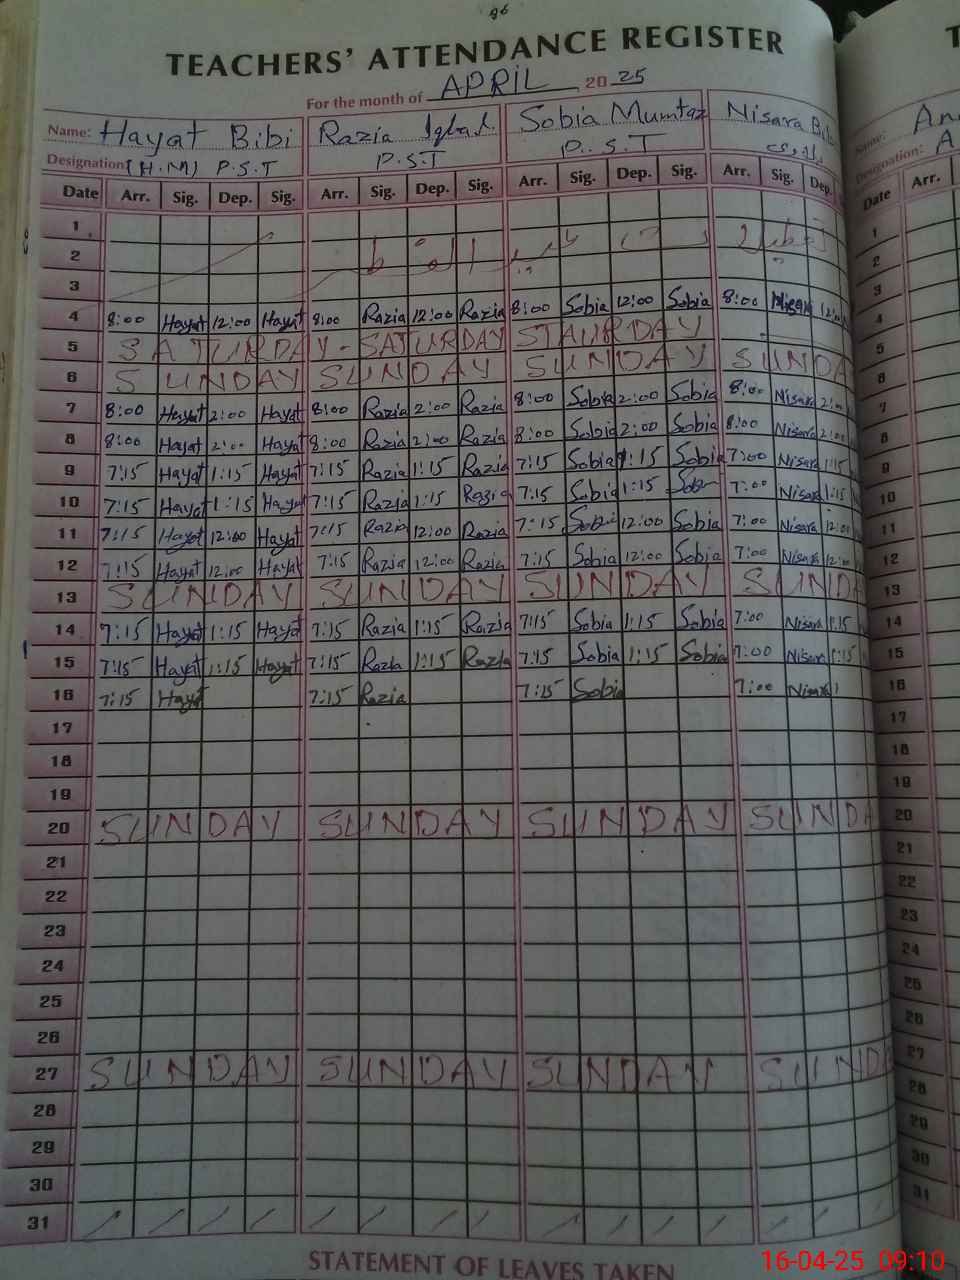 TEACHERS' ATTENDANCE REGISTER
For the month of APRIL 2025
Name: Hayat Bibi Razia Iqbal Sobia Mumtaz Nisara Bibi
Designation: (H.M) P.S.T P.S.T P.S.T
Date Arr. Sig. Dep. Sig. Arr. Sig. Dep. Sig. Arr. Sig. Dep. Sig. Arr. Sig. Dep.
1
2
3
4 8:00 Hayat 12:00 Hayat 8:00 Razia 12:00 Razia 8:00 Sobia 12:00 Sobia 8:00 Nisara 12:00
5 SATURDAY - SATURDAY STAURDAY
6 SUNDAY SUNDAY SUNDAY SUNDA
7 8:00 Hayat 2:00 Hayat 8:00 Razia 2:00 Razia 8:00 Sobia 2:00 Sobia 8:00 Nisara 2:00
8 8:00 Hayat 2:00 Hayat 8:00 Razia 2:00 Razia 8:00 Sobia 2:00 Sobia 8:00 Nisara 2:00
9 7:15 Hayat 1:15 Hayat 7:15 Razia 1:15 Razia 7:15 Sobia 1:15 Sobia 7:00 Nisara 1:15
10 7:15 Hayat 1:15 Hayat 7:15 Razia 1:15 Razia 7:15 Sobia 1:15 Sobia 7:00 Nisara 1:15
11 7:15 Hayat 12:00 Hayat 7:15 Razia 12:00 Razia 7:15 Sobia 12:00 Sobia 7:00 Nisara 12:00
12 7:15 Hayat 12:00 Hayat 7:15 Razia 12:00 Razia 7:15 Sobia 12:00 Sobia 7:00 Nisara 12:00
13 SUNDAY SUNDAY SUNDAY SUNDA
14 7:15 Hayat 1:15 Hayat 7:15 Razia 1:15 Razia 7:15 Sobia 1:15 Sobia 7:00 Nisara 1:15
15 7:15 Hayat 1:15 Hayat 7:15 Razia 1:15 Razia 7:15 Sobia 1:15 Sobia 7:00 Nisara 1:15
16 7:15 Hayat 7:15 Razia 7:15 Sobia 7:00 Nisara
17
18
19
20 SUNDAY SUNDAY SUNDAY SUNDA
21
22
23
24
25
26
27 SUNDAY SUNDAY SUNDAY SUND
28
29
30
31
STATEMENT OF LEAVES TAKEN
Name: An
Designation: A
Date Arr.
1
2
3
4
5
6
7
8
9
10
11
12
13
14
15
16
17
18
19
20
21
22
23
24
25
26
27
28
29
30
31
16-04-25 09:10